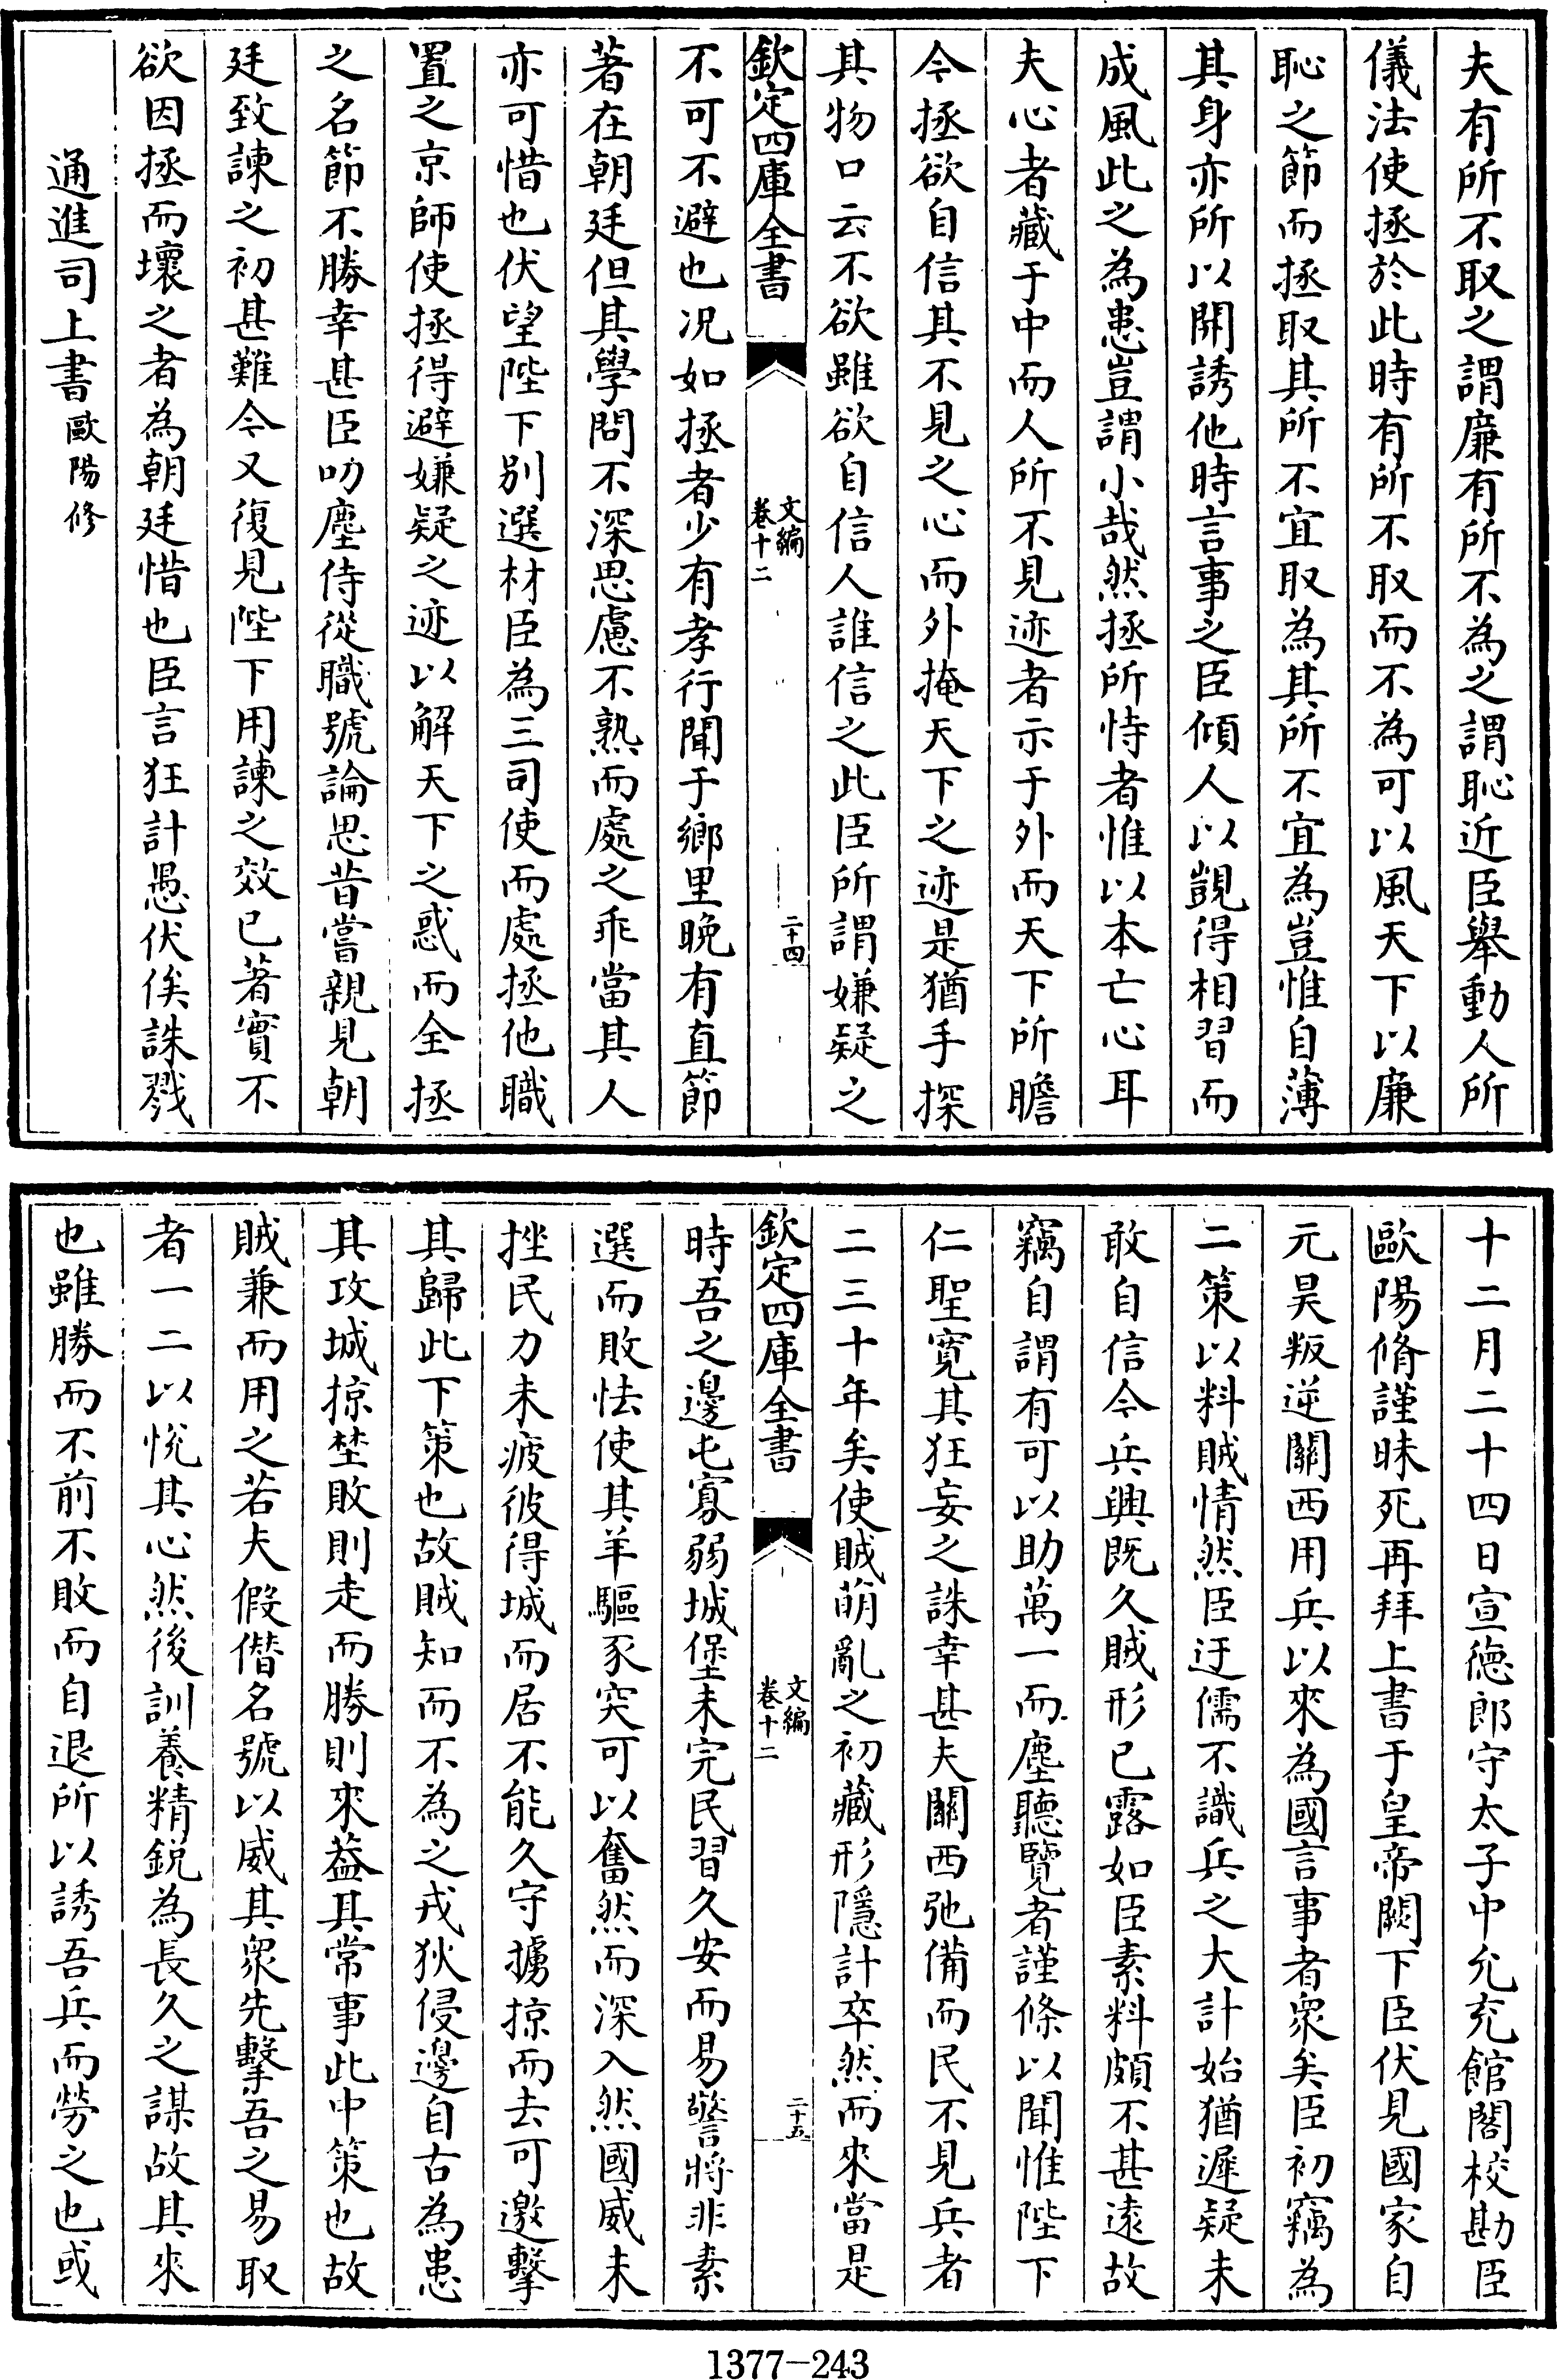 夫有所不取之謂廉有所不為之謂恥近臣舉動人所
儀法使拯於此時有所不取而不為可以風天下以廉
恥之節而拯取其所不宜取為其所不宜為豈惟自薄
其身亦所以開誘他時言事之臣傾人以覬得相習而
成風此之為患豈謂小哉然拯所恃者惟以本亡心耳
夫心者藏于中而人所不見迹者示于外而天下所瞻
今拯欲自信其不見之心而外掩天下之迹是猶手探
其物口云不欲雖欲自信人誰信之此臣所謂嫌疑之
欽定四庫全書
文編
卷十二
二十四
不可不避也況如拯者少有孝行聞于鄉里晚有直節
著在朝廷但其學問不深思慮不熟而處之乖當其人
亦可惜也伏望陛下別選材臣為三司使而處拯他職
置之京師使拯得避嫌疑之迹以解天下之惑而全拯
之名節不勝幸甚臣叨塵侍從職號論思昔嘗親見朝
廷致諫之初甚難今又復見陛下用諫之效已著實不
欲因拯而壞之者為朝廷惜也臣言狂計愚伏俟誅戮
通進司上書歐陽修
十二月二十四日宣德郎守太子中允充館閣校勘臣
歐陽脩謹昧死再拜上書于皇帝闕下臣伏見國家自
元昊叛逆關西用兵以來為國言事者衆矣臣初竊為
二策以料賊情然臣迂儒不識兵之大計始猶遲疑未
敢自信今兵興既久賊形已露如臣素料頗不甚遠故
竊自謂有可以助萬一而塵聽覽者謹條以聞惟陛下
仁聖寬其狂妄之誅幸甚夫關西弛備而民不見兵者
二三十年矣使賊萌亂之初藏形隱計卒然而來當是
欽定四庫全書
文編
卷十二
二十五
時吾之邊屯寡弱城堡未完民習久安而易警將非素
選而敗怯使其羊驅豕突可以奮然而深入然國威未
挫民力未疲彼得城而居不能久守擄掠而去可邀擊
其歸此下策也故賊知而不為之戎狄侵邊自古為患
其攻城掠埜敗則走而勝則來葢其常事此中策也故
賊兼而用之若夫假僭名號以威其衆先擊吾之易取
者一二以悅其心然後訓養精銳為長久之謀故其來
也雖勝而不前不敗而自退所以誘吾兵而勞之也或
1377-243